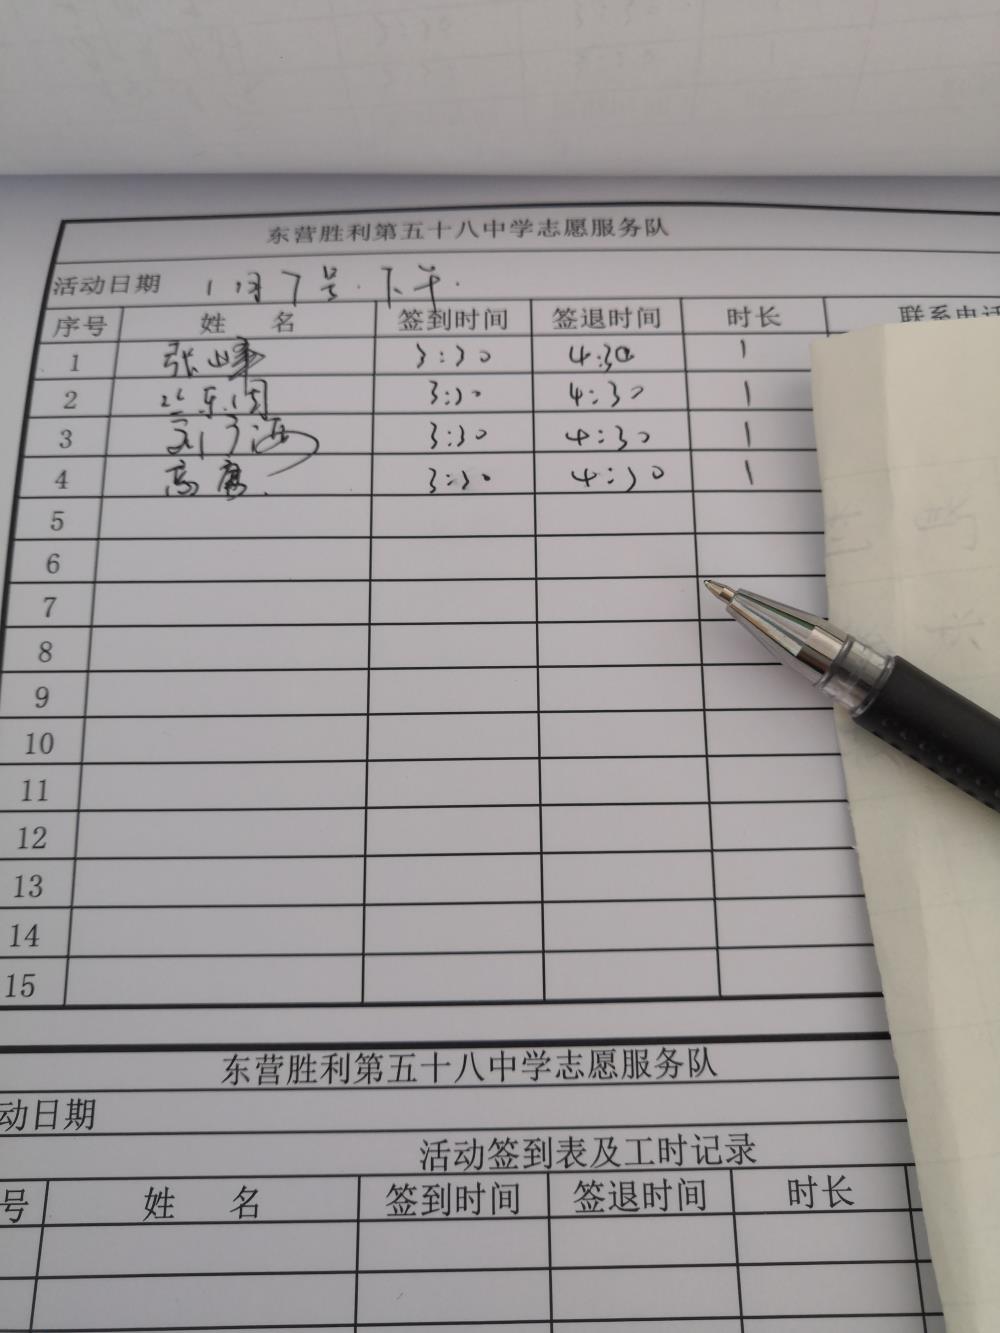 东营胜利第五十八中学志愿服务队
活动日期 11月7号.下午.
序号 姓 名 签到时间 签退时间 时长 联系电话
1 张峰 3:30 4:30 1
2 3:30 4:30 1
3 3:30 4:30 1
4 高 3:30 4:30 1
5
6
7
8
9
10
11
12
13
14
15
东营胜利第五十八中学志愿服务队
动日期
活动签到表及工时记录
号 姓 名 签到时间 签退时间 时长